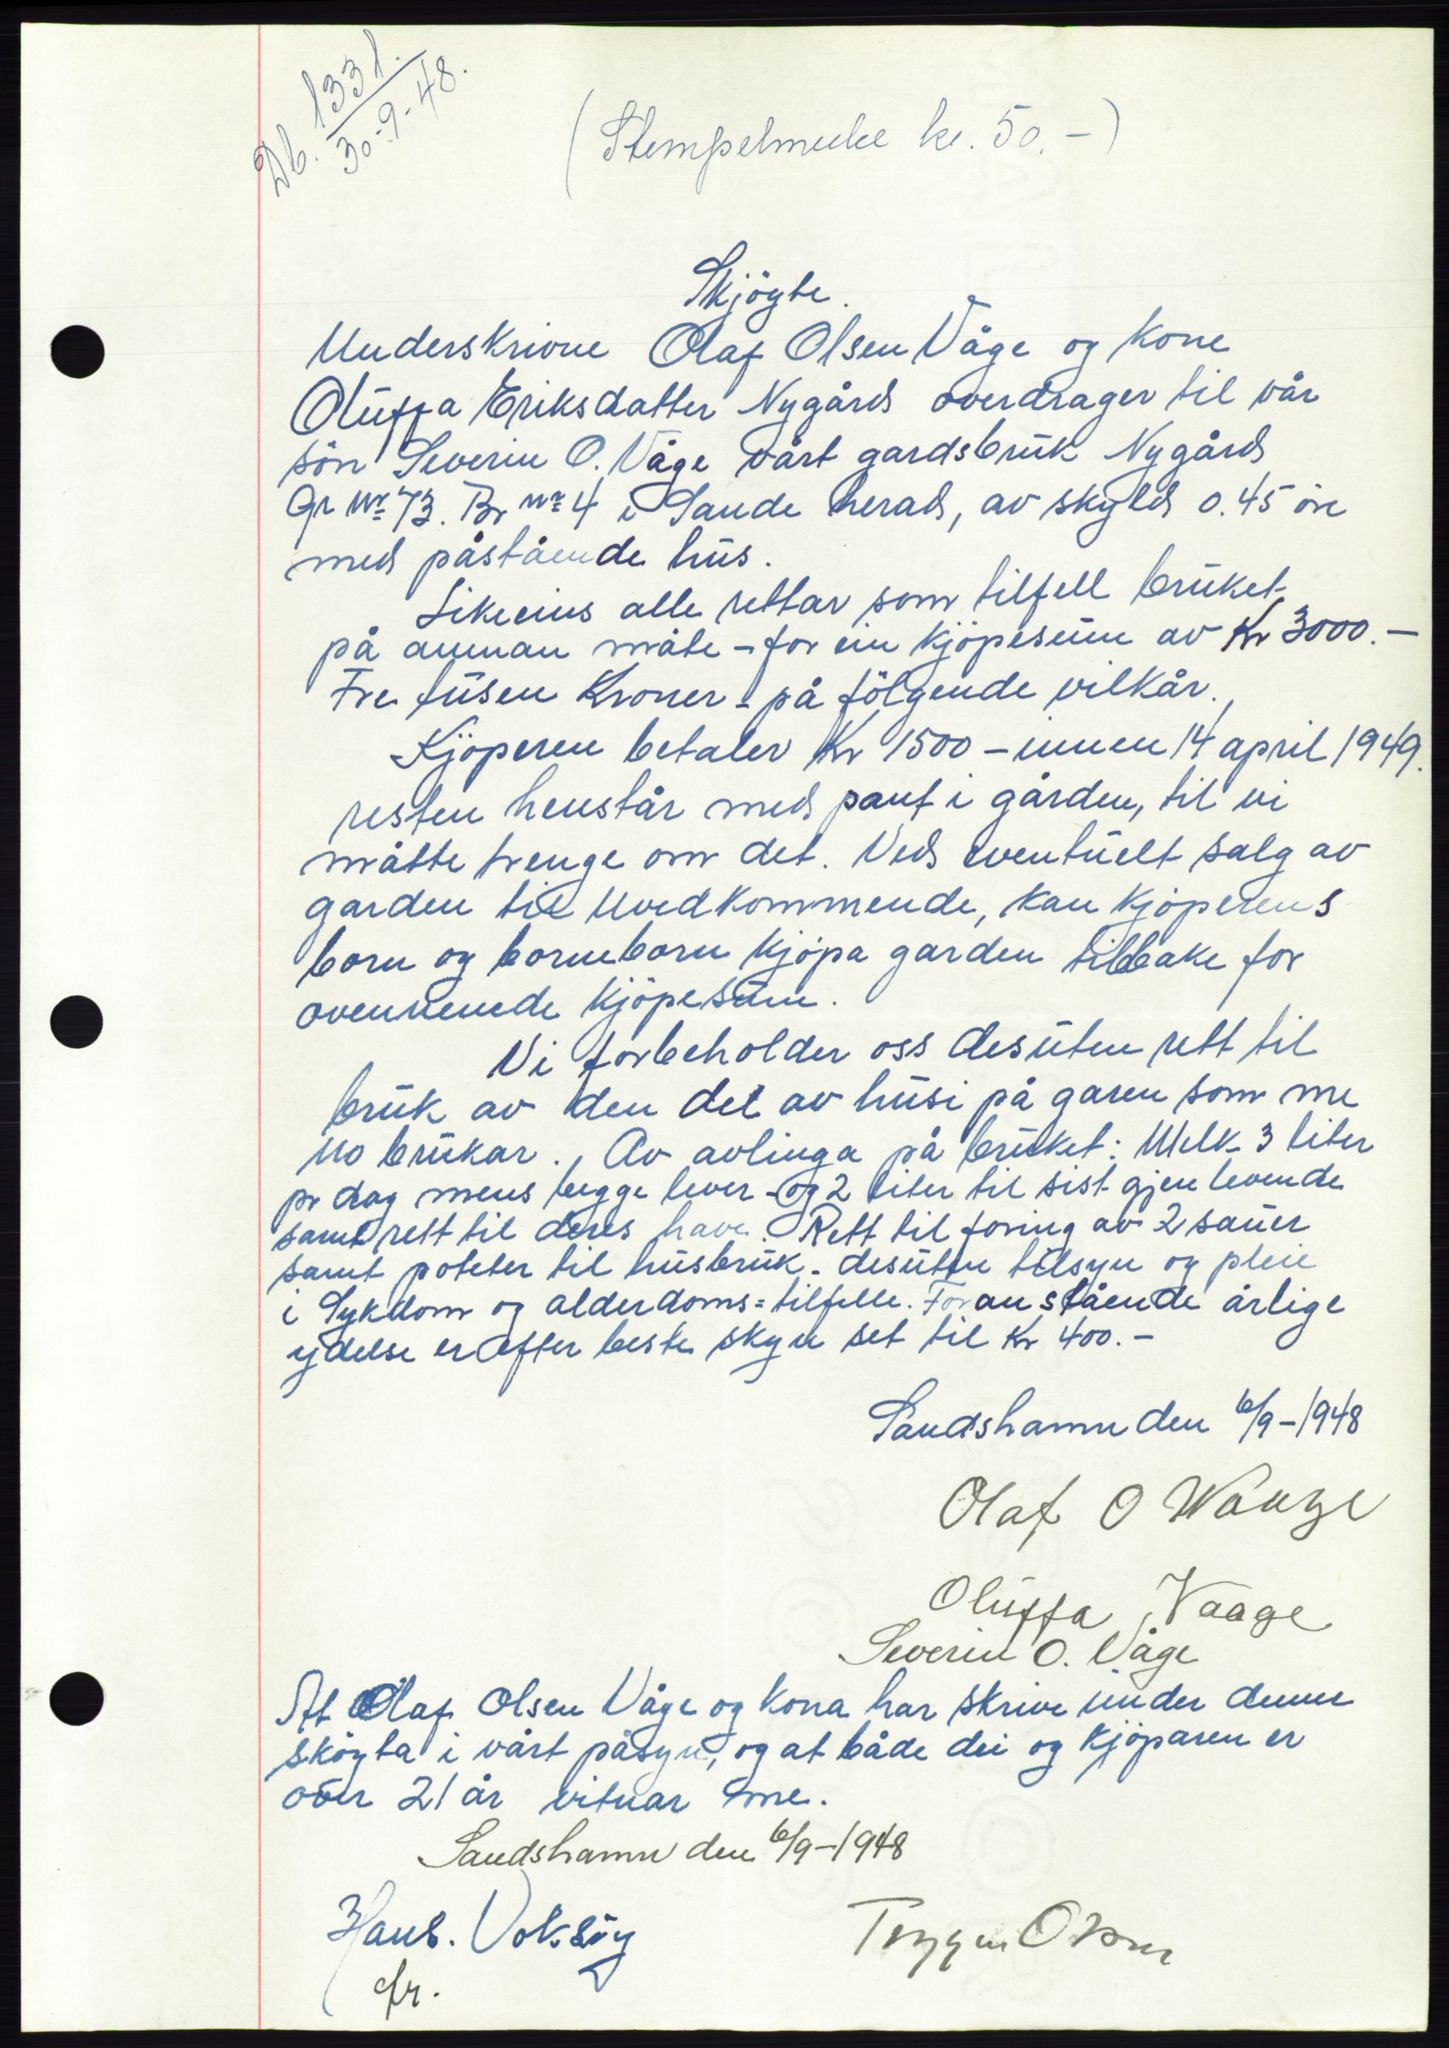 Db. 1331.
30-9-48.
(Stempelmerke kr. 50.-)
Skjöyte.
Underskrivne Olaf Olsen Våge og kone
Oluffa Eriksdatter Nygård overdrager til vår
sön Severin O. Våge vårt gardsbruk Nygård
Gr Nr 73. Br nr 4 i Sande herad, av skyld 0.45 öre
med påstående hus.
Likeeins alle rettar som tilfell bruket
på annan måte - for ein kjöpesum av Kr 3000.-
Tre tusen Kroner - på fölgende vilkår.
Kjöperen betaler Kr 1500 - innen 14 april 1949.
resten henstår med pant i gården, til vi
måtte trenge om det. Ved eventuelt salg av
garden til uvedkommende, kan kjöperens
born og borneborn kjöpa garden tilbake for
ovennemde kjöpesum.
Vi forbeholder oss desuten rett til
bruk av den del av husi på garen som me
no brukar. Av avlinga på bruket: Melk 3 liter
pr dag mens begge lever - og 2 liter til sist gjenlevende
samt rett til deres have. Rett til foring av 2 sauer
samt poteter til husbruk - desuten tilsyn og pleie
i Sykdom og alderdoms=tilfelle. Foranstående årlige
ydelse er efter beste skyn set til Kr 400.-
Sandshamn den 6/9-1948
Olaf O Waage
Oluffa Vaage
Severin O. Våge
At Olaf Olsen Våge og kona har skrive under denne
sköyta i vårt påsyn, og at både dei og kjöparen er
over 21 år vitnar me.
Sandshamn den 6/9-1948
Hans. Voksöy
Trygve
lfr.